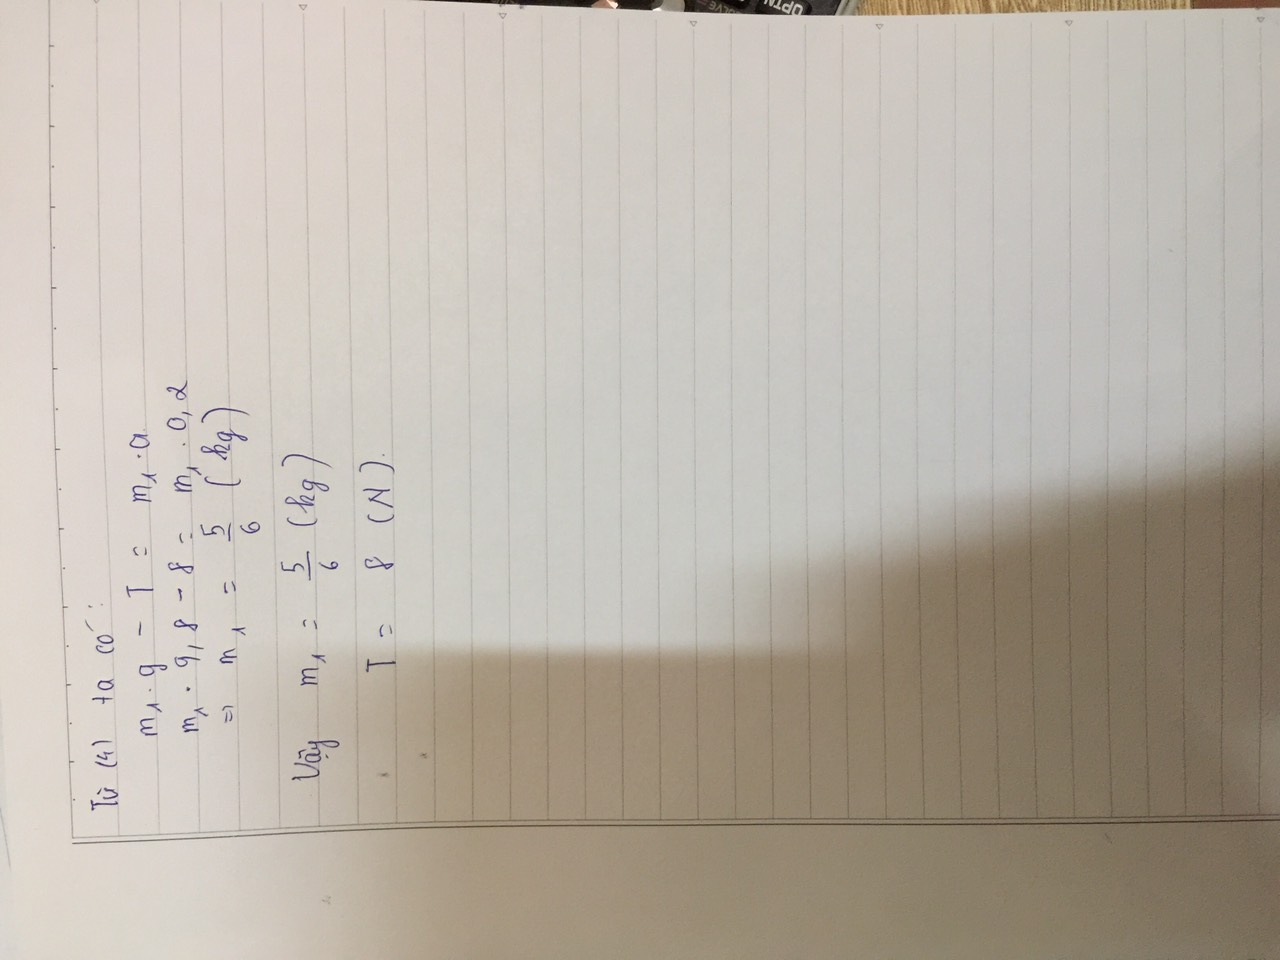 Từ (4) ta có:
m₁ . g - T = m₁ . a
m₁ . 9,8 - 8 = m₁ . 0,2
=> m₁ = 5/6 (kg)
Vậy m₁ = 5/6 (kg)
T = 8 (N).
OPTN